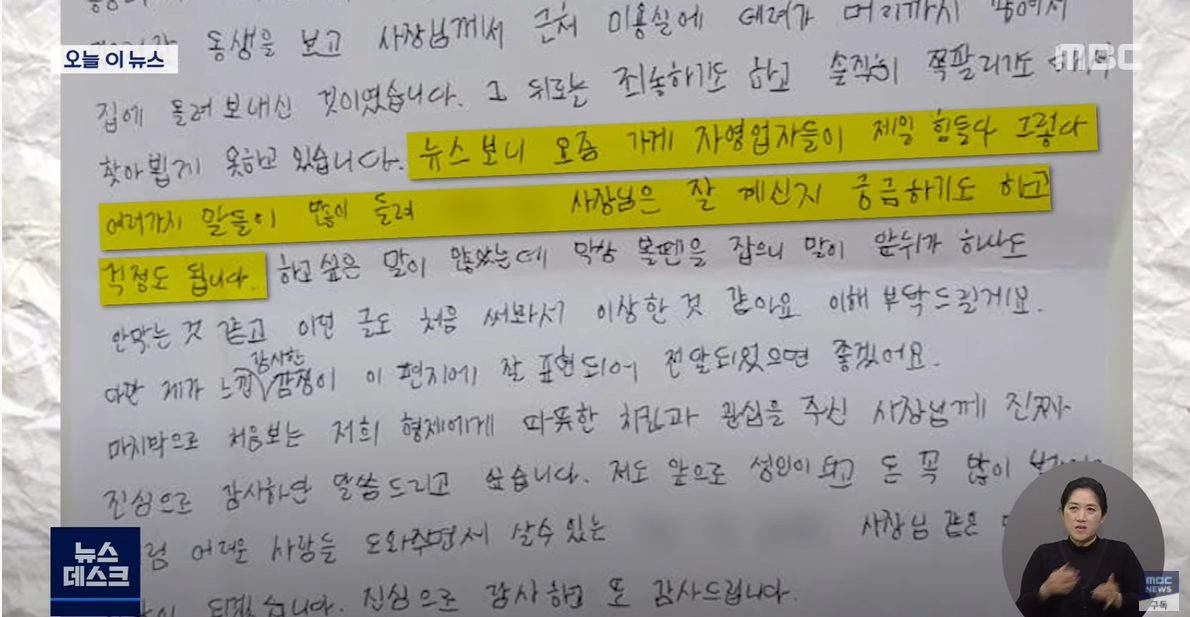 오늘 이 뉴스
MBC
동생을 보고 사장님께서 근처 미용실에 데려가 머리까지
집에 돌려 보내신 것이였습니다. 그 뒤로는 죄송하기도 하고 솔직히 쪽팔리기도
찾아뵙게 못하고 있습니다. 뉴스보니 요즘 가게 자영업자들이 제일 힘들다 그렇다
여러가지 말들이 많이 들려 사장님은 잘 계신지 궁금하기도 하고
걱정도 됩니다. 하고싶은 말이 많았는데 막상 볼펜을 잡으니 말이 앞뒤가 하나도
안맞는 것 같고 이런 글도 처음 써봐서 이상한 것 같아요 이해 부탁드릴게요.
다만 제가 느낀 감사한 감정이 이 편지에 잘 표현되어 전달되었으면 좋겠어요.
마지막으로 처음보는 저희 형제에게 따뜻한 치킨과 관심을 주신 사장님께 진짜
진심으로 감사하단 말씀드리고 싶습니다. 저도 앞으로 성인이 되고 돈 꼭 많이
어려운 사람들 도와주면서 살수 있는 사장님 같은
되겠습니다. 진심으로 감사하고 또 감사드립니다.
뉴스
데스크
MBC
NEWS
구독